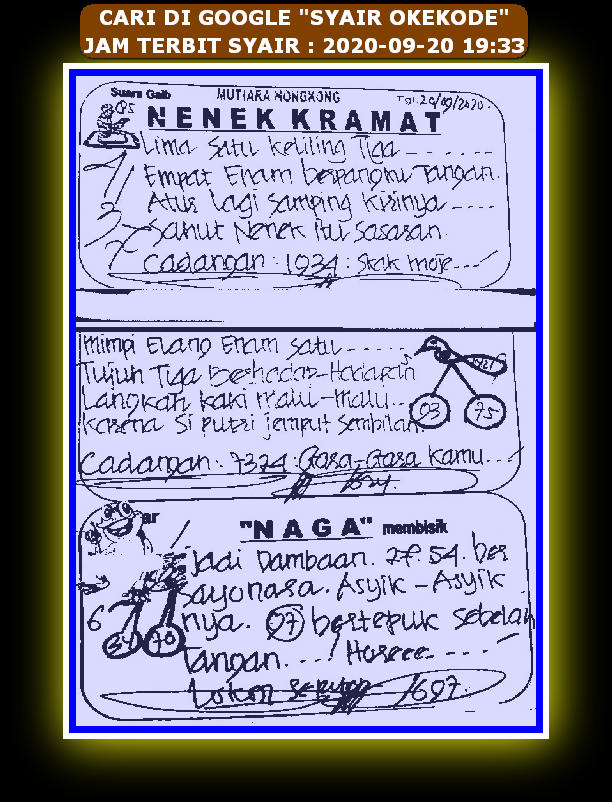 CARI DI GOOGLE "SYAIR OKEKODE"
JAM TERBIT SYAIR : 2020-09-20 19:33
Suara Gaib MUTIARA HONGKONG Tgl. 20/09/2020.
NENEK KRAMAT
Lima Satu Keliling Tiga
Empat Enam berpangku Tangan.
Atur lagi Samping Kirinya
Sahut Nenek itu Sasaran.
Cadangan : 1934 :
Mimpi Elang Enam Satu
Tujuh Tiga Berhadap-Hadapan
Langkah Kaki malu-malu
Karena Si putri jemput Sembilan.
03 75
Cadangan : 7324 : Gara-Gara Kamu.
"NAGA" membisik
Jadi Dambaan. 27. 54. ber
Sayonara. Asyik-Asyik
nya. 07 bertepuk sebelah
6 34 70
Tangan.... Horeee....
1697.